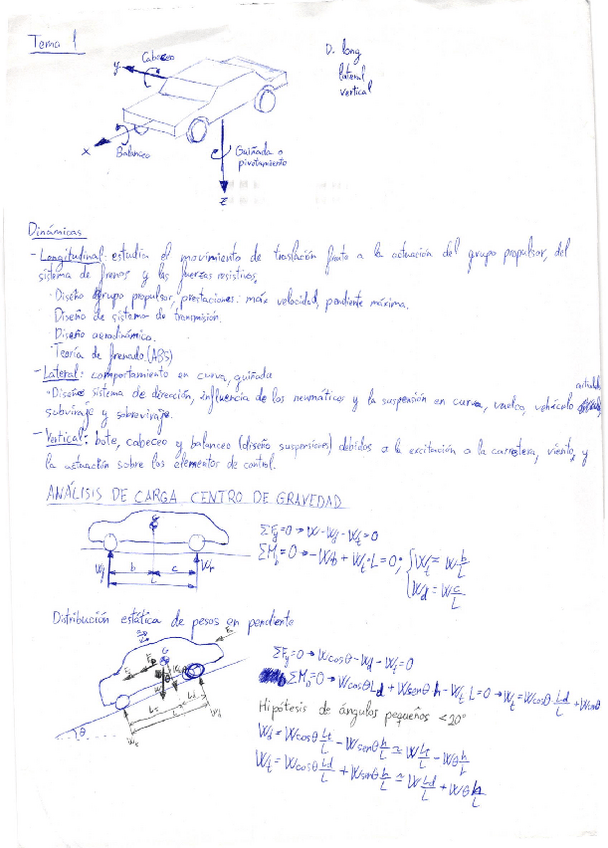 Tema 1
Cabeceo
y
x
Balanceo
Guiñada o
pivotamiento
z
D. long
lateral
vertical
Dinámicas
- Longitudinal: estudia el movimiento de traslación frente a la actuación del grupo propulsor, del
sistema de frenos y las fuerzas resistivas.
· Diseño grupo propulsor, prestaciones: máx velocidad, pendiente máxima.
Diseño de sistema de transmisión.
Diseño aerodinámico.
· Teoría de frenado (ABS)
- Lateral: comportamiento en curva, guiñada
· Diseño sistema de dirección, influencia de los neumáticos y la suspensión en curva, vuelco, vehículo
subviraje y sobreviraje.
- Vertical: bote, cabeceo y balanceo (diseño suspensiones) debidos a la excitación a la carretera, viento, y
la actuación sobre los elementos de control.
ANÁLISIS DE CARGA CENTRO DE GRAVEDAD
b c
L
ΣFy=0 → W-Wd-Wt=0
-Wb + Wt·L=0; { Wt = W b/L
Wd = W c/L
Distribución estática de pesos en pendiente
G
θ
ΣFy=0 → Wcosθ-Wd-Wt=0
ΣM0=0 → WcosθLd + Wsenθ h - Wt L=0 → Wt=Wcosθ Ld/L + Wsenθ
Hipótesis de ángulos pequeños <20°
Wd = Wcosθ Lt/L - Wsenθ h/L ≃ W Lt/L - Wθ h/L
Wt = Wcosθ Ld/L + Wsenθ h/L ≃ W Ld/L + Wθ h/L